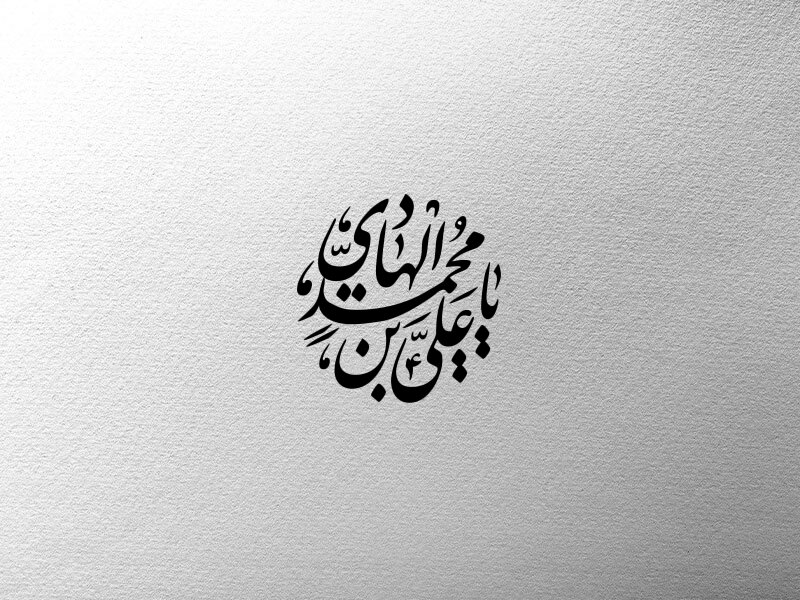 يا علي بن محمد الهادي